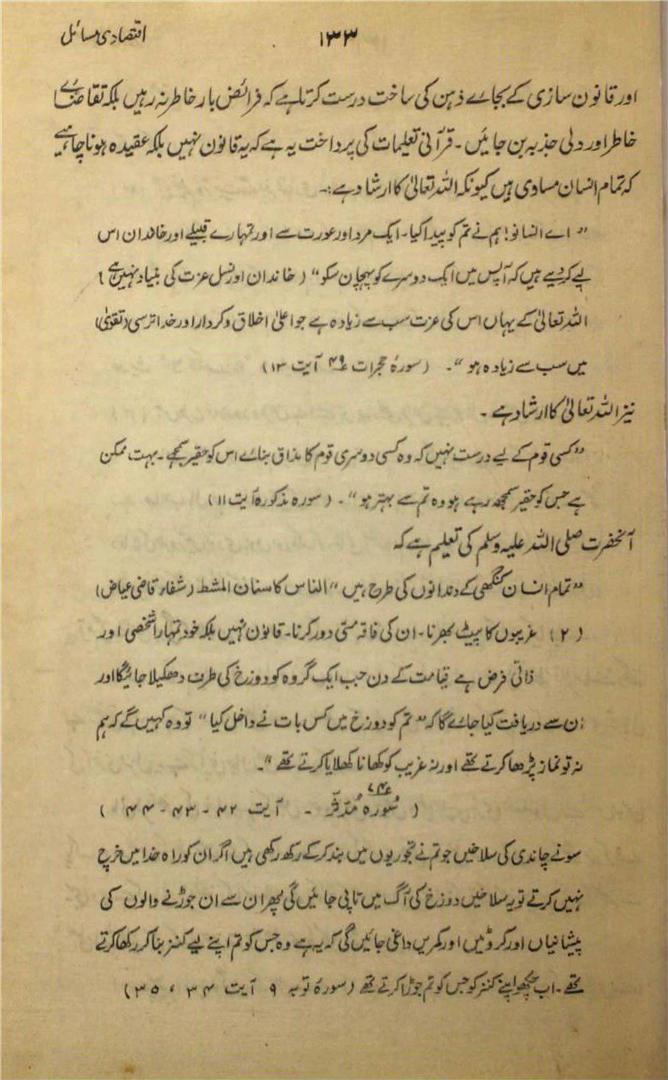 اقتصادی مسائل
۱۳۳
اور قانون سازی کے بجائے ذہن کی ساخت درست کرتا ہے کہ فرائض بار خاطر نہ رہیں بلکہ تقاضائے
خاطر اور دلی جذبہ بن جائیں۔ قرآنی تعلیمات کی پرداخت یہ ہے کہ یہ قانون نہیں بلکہ عقیدہ ہونا چاہیے
کہ تمام انسان مساوی ہیں کیونکہ اللہ تعالیٰ کا ارشاد ہے:۔
”اے انسانو! ہم نے تم کو پیدا کیا۔ ایک مرد اور عورت سے اور تمہارے قبیلے اور خاندان اس
لیے کر دیے ہیں کہ آپس میں ایک دوسرے کو پہچان سکو“ (خاندان اور نسل عزت کی بنیاد نہیں ہے)
اللہ تعالیٰ کے یہاں اس کی عزت سب سے زیادہ ہے جو اعلیٰ اخلاق و کردار اور خدا ترسی (تقویٰ)
میں سب سے زیادہ ہو“۔ (سورۂ حجرات ۴۹ آیت ۱۳)
نیز اللہ تعالیٰ کا ارشاد ہے۔
”کسی قوم کے لیے درست نہیں کہ وہ کسی دوسری قوم کا مذاق بنائے اس کو حقیر سمجھے۔ بہت ممکن
ہے جس کو حقیر سمجھ رہے ہو وہ تم سے بہتر ہو“۔ (سورہ مذکورہ آیت ۱۱)
آنحضرت صلی اللہ علیہ وسلم کی تعلیم ہے کہ
”تمام انسان کنگھی کے دندانوں کی طرح ہیں“ الناس کاسنان المشط (شفاء قاضی عیاض)
(۲) غریبوں کا پیٹ بھرنا۔ ان کی فاقہ مستی دور کرنا۔ قانون نہیں بلکہ خود تمہارا شخصی اور
ذاتی فرض ہے قیامت کے دن جب ایک گروہ کو دوزخ کی طرف دھکیلا جائیگا اور
ان سے دریافت کیا جائے گا کہ ”تم کو دوزخ میں کس بات نے داخل کیا“ تو وہ کہیں گے کہ ہم
نہ تو نماز پڑھا کرتے تھے اور نہ غریب کو کھانا کھلایا کرتے تھے“۔
(سُورہ مُدّثّر ۷۴ ۔ آیت ۴۲ - ۴۳ - ۴۴)
سونے چاندی کی سلاخیں جو تم نے تجوریوں میں بند کر کے رکھ رکھی ہیں اگر ان کو راہ خدا میں خرچ
نہیں کرتے تو یہ سلاخیں دوزخ کی آگ میں تاپی جائیں گی پھر ان سے ان جوڑنے والوں کی
پیشانیاں اور کروٹیں اور کمریں داغی جائیں گی کہ یہ ہے وہ جس کو تم اپنے لیے کنز بنا کر رکھا کرتے
تھے۔ اب چکھو اپنے کنز کو جس کو تم جوڑا کرتے تھے (سورۂ توبہ ۹ آیت ۳۴، ۳۵)